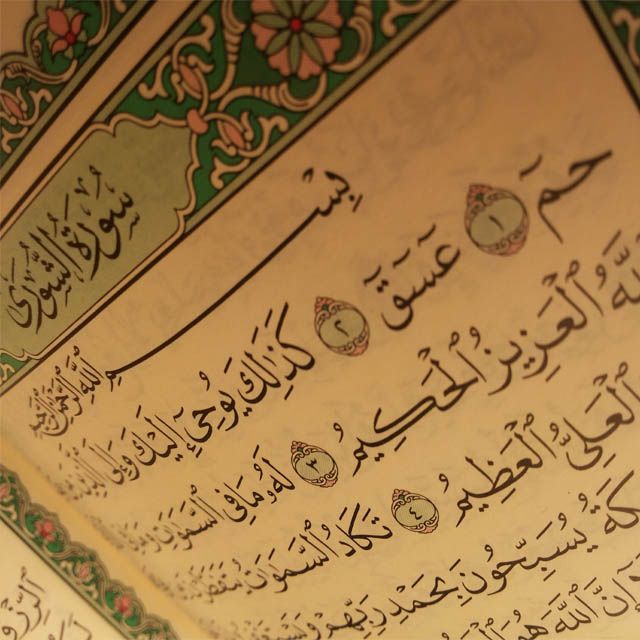 سُورَةُ الشُّورَىٰ
بِسْمِ اللَّهِ الرَّحْمَٰنِ الرَّحِيمِ
حمٓ ١ عٓسٓقٓ ٢ كَذَٰلِكَ يُوحِيٓ إِلَيْكَ وَإِلَى الَّذِينَ
اللَّهُ ٱلْعَزِيزُ ٱلْحَكِيمُ ٣ لَهُۥ مَا فِي ٱلسَّمَٰوَٰتِ
ٱلْعَلِيُّ ٱلْعَظِيمُ ٤ تَكَادُ ٱلسَّمَٰوَٰتُ يَتَفَطَّرْنَ
يُسَبِّحُونَ بِحَمْدِ رَبِّهِمْ وَيَسْتَغْفِرُونَ
ٱللَّهَ هُوَ